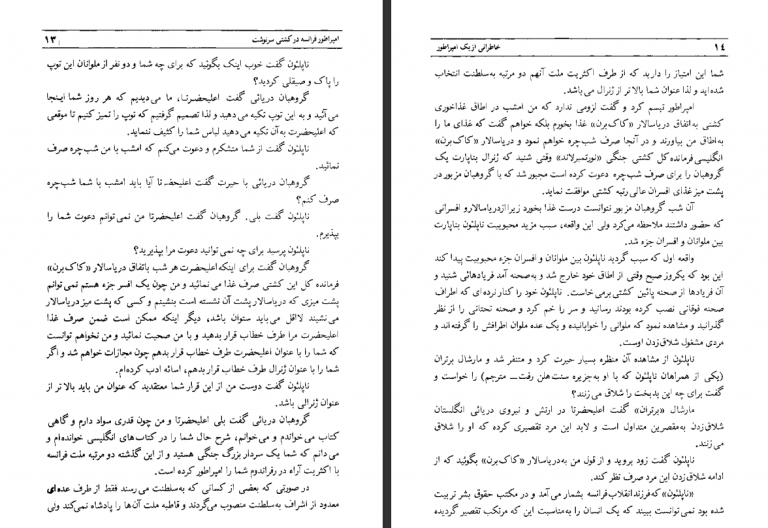 امپراطور فرانسه در کشتی سرنوشت
۱۳
ناپلئون گفت خوب اینک بگوئید که برای چه شما و دو نفر از ملوانان این توپ
را پاک و صیقلی کردید؟
گروهبان دریائی گفت اعلیحضرتا، ما می‌دیدیم که هر روز شما اینجا
می‌آئید و به این توپ تکیه می‌دهید و لذا تصمیم گرفتیم که توپ را تمیز کنیم تا موقعی
که اعلیحضرت به آن تکیه می‌دهید لباس شما را کثیف ننماید.
ناپلئون گفت از شما متشکرم و دعوت می‌کنم که امشب با من شب‌چره صرف
نمائید.
گروهبان دریائی با حیرت گفت اعلیحضرتا آیا باید امشب با شما شب‌چره
صرف کنم؟
ناپلئون گفت بلی. گروهبان گفت اعلیحضرتا من نمی‌توانم دعوت شما را
بپذیرم.
ناپلئون پرسید برای چه نمی توانید دعوت مرا بپذیرید؟
گروهبان گفت برای اینکه اعلیحضرت هر شب باتفاق دریاسالار «کاک‌برن»
فرمانده کل این کشتی صرف غذا می‌نمائید و من چون یک افسر جزء هستم نمی توانم
پشت میزی که دریاسالار پشت آن نشسته است بنشینم و کسی که پشت میز دریاسالار
می‌نشیند لااقل می‌باید ستوان باشد، دیگر اینکه ممکن است ضمن صرف غذا
اعلیحضرت مرا طرف خطاب قرار بدهید و با من صحبت نمائید و من نخواهم توانست
که شما را با عنوان اعلیحضرت طرف خطاب قرار بدهم چون مجازات خواهم شد و اگر
شما را با عنوان ژنرال طرف خطاب قرار بدهم، اسائه ادب کرده‌ام.
ناپلئون گفت دوست من از این قرار شما معتقدید که عنوان من باید بالاتر از
عنوان ژنرالی باشد.
گروهبان دریائی گفت بلی اعلیحضرتا و من چون قدری سواد دارم و گاهی
کتاب می‌خواندم و می‌خوانم، شرح حال شما را در کتاب‌های انگلیسی خوانده‌ام و
می دانم که شما یک سردار بزرگ جنگی هستید و از این گذشته دو مرتبه ملت فرانسه
با اکثریت آراء در رفراندوم شما را امپراطور کرده است.
در صورتی که بعضی از کسانی که به‌سلطنت می رسند فقط از طرف عده‌ای
معدود از اشراف به‌سلطنت منصوب می‌گردند و قاطبه ملت آن‌ها را پادشاه نمی‌کند ولی
۱۴
خاطراتی از یک امپراطور
شما این امتیاز را دارید که از طرف اکثریت ملت آنهم دو مرتبه به‌سلطنت انتخاب
شده‌اید و لذا عنوان شما بالاتر از ژنرال می‌باشد.
امپراطور تبسم کرد و گفت لزومی ندارد که من امشب در اطاق غذاخوری
کشتی به‌اتفاق دریاسالار «کاک‌برن» غذا بخورم بلکه خواهم گفت که غذای ما را
به‌اطاق من بیاورند و در آنجا صرف شب‌چره خواهم نمود و دریاسالار «کاک‌برن»
انگلیسی فرمانده کل کشتی جنگی «نورتمبرلاند» وقتی شنید که ژنرال بناپارت یک
گروهبان را برای صرف شب‌چره دعوت کرده است مجبور شد که با گروهبان مزبور در
پشت میز غذای افسران عالی رتبه کشتی موافقت نماید.
آن شب گروهبان مزبور نتوانست درست غذا بخورد زیرا از دریاسالار و افسرانی
که حضور داشتند ملاحظه می‌کرد ولی این واقعه، سبب مزید محبوبیت ناپلئون بناپارت
بین ملوانان و افسران جزء شد.
واقعه اول که سبب گردید ناپلئون بین ملوانان و افسران جزء محبوبیت پیدا کند
این بود که یکروز صبح وقتی از اطاق خود خارج شد و به‌صحنه آمد فریادهائی شنید و
آن فریادها از صحنه پائین کشتی برمی‌خاست. ناپلئون خود را کنار نرده ای که اطراف
صحنه فوقانی نصب کرده بودند رسانید و سر را خم کرد و صحنه تحتانی را از نظر
گذرانید و مشاهده نمود که ملوانی را خوابانیده و یک عده ملوان اطرافش را گرفته‌اند و
مردی مشغول شلاق زدن اوست.
ناپلئون از مشاهده آن منظره بسیار حیرت کرد و متنفر شد و مارشال برتران
(یکی از همراهان ناپلئون که با او به‌جزیره سنت‌هلن رفت — مترجم) را خواست و
گفت برای چه این بدبخت را شلاق می‌زنند؟
مارشال «برتران» گفت اعلیحضرتا در ارتش و نیروی دریائی انگلستان
شلاق‌زدن به‌مقصرین متداول است و لابد این مرد تقصیری کرده که او را شلاق
می‌زنند.
ناپلئون گفت زود بروید و از قول من به‌دریاسالار «کاک‌برن» بگوئید که از
ادامه شلاق‌زدن این مرد صرف نظر کند.
«ناپلئون» که فرزند انقلاب فرانسه بشمار می آمد و در مکتب حقوق بشر تربیت
شده بود نمی توانست ببیند که یک انسان را به‌مناسبت این که مرتکب تقصیر گردیده